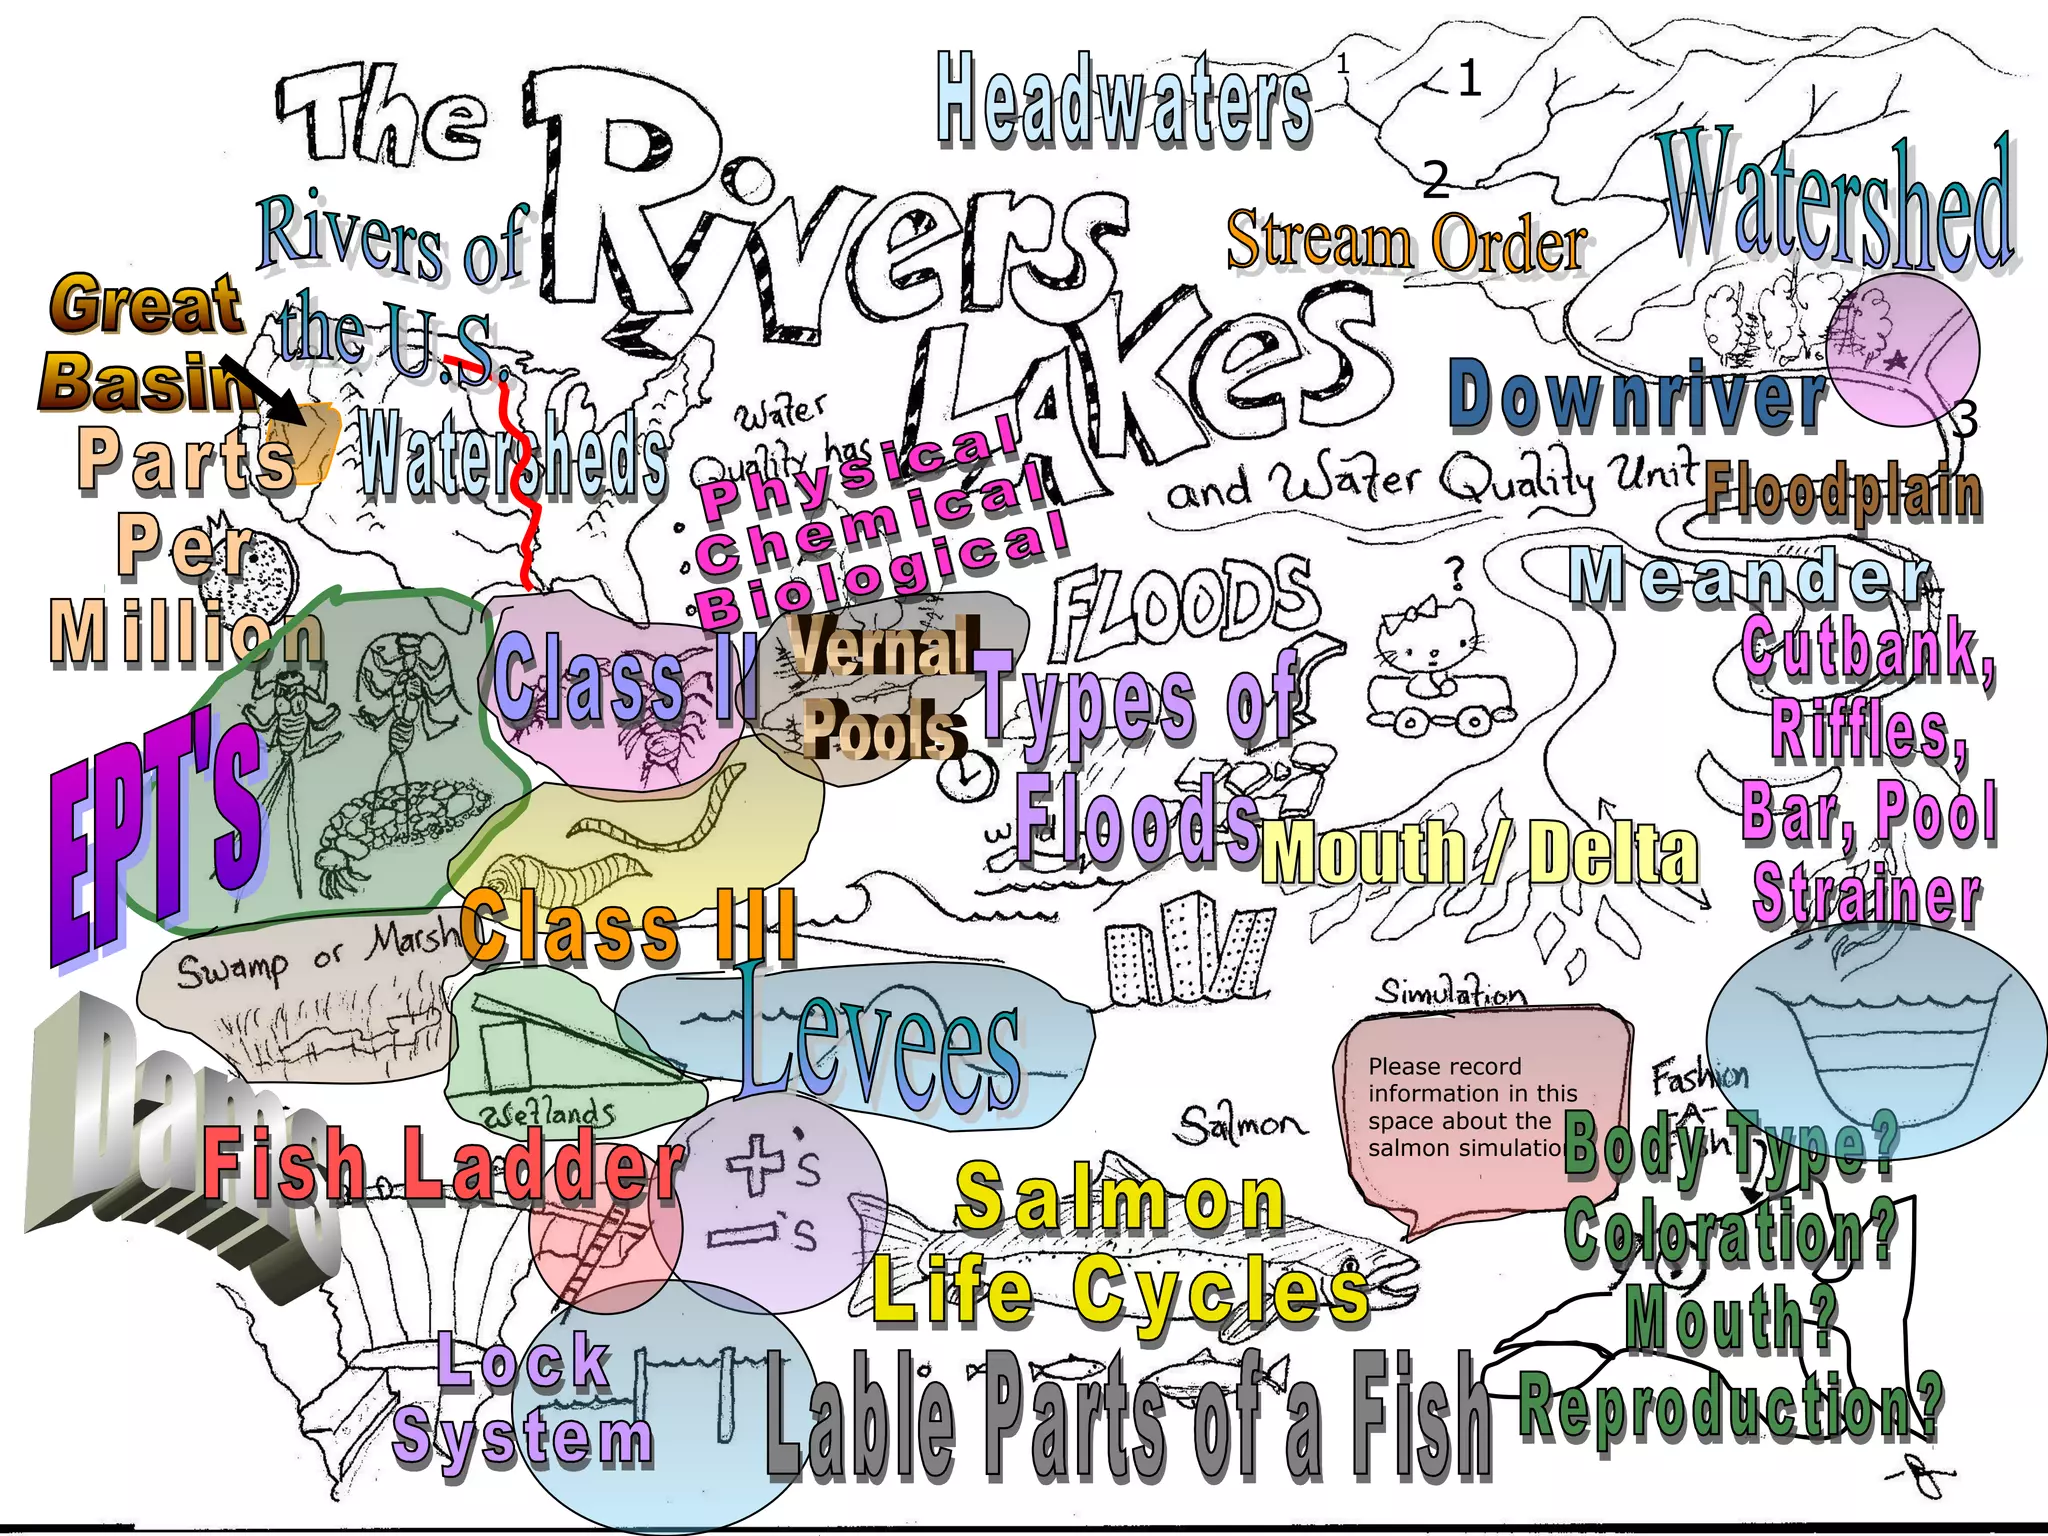 The
Rivers
Lakes
and Water Quality Unit
Headwaters
1
1
2
3
Watershed
Stream Order
Rivers of
the U.S.
Great
Basin
Watersheds
Parts
Per
Million
Water
Quality has
Physical
Chemical
Biological
Downriver
Floodplain
Meander
Cutbank,
Riffles,
Bar, Pool
Strainer
FLOODS
?
Types of
Floods
Vernal
Pools
Class II
EPT's
Class III
Mouth / Delta
Swamp or Marsh
Wetlands
Levees
Dams
Fish Ladder
+'s
-'s
Lock
System
Simulation
Please record
information in this
space about the
salmon simulation
Salmon
Salmon
Life Cycles
Lable Parts of a Fish
Fashion
-A-
Fish
Body Type?
Coloration?
Mouth?
Reproduction?